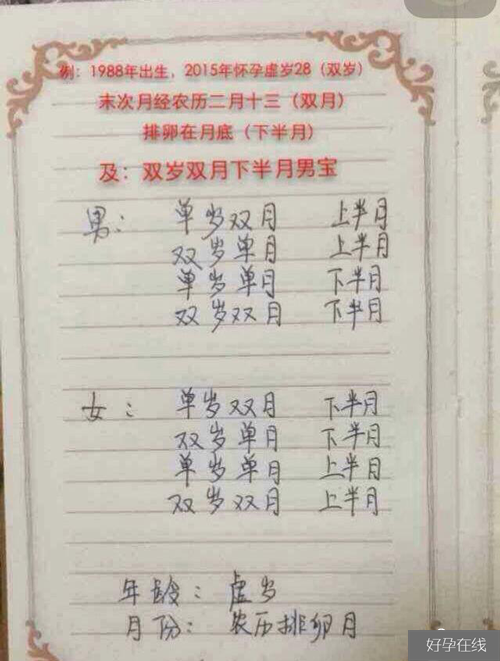 例：1988年出生，2015年怀孕虚岁28（双岁）
末次月经农历二月十三（双月）
排卵在月底（下半月）
及：双岁双月下半月男宝
男： 单岁双月 上半月
双岁单月 上半月
单岁单月 下半月
双岁双月 下半月
女： 单岁双月 下半月
双岁单月 下半月
单岁单月 上半月
双岁双月 上半月
年龄：虚岁
月份：农历排卵月
好孕在线